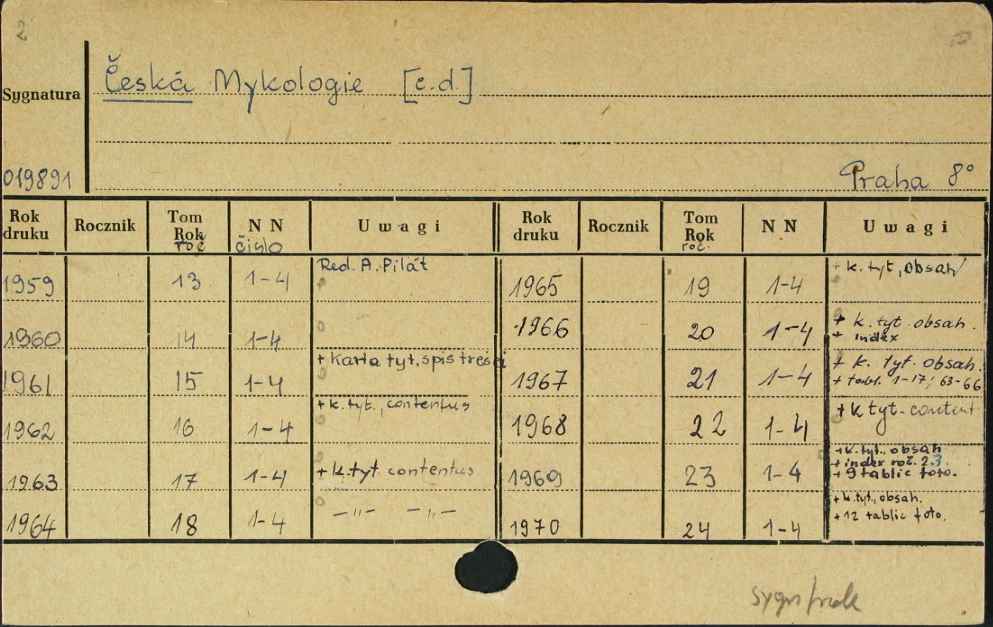 2
Sygnatura
Česká Mykologie [c.d.]
019891
Praha 8°
Rok druku Rocznik Tom Rok roč NN čislo Uwagi Rok druku Rocznik Tom Rok roč. NN Uwagi
1959 13 1-4 Red. A. Pilát
1960 14 1-4
1961 15 1-4 + karta tyt, spis treści
1962 16 1-4 + k.tyt., contentus
1963 17 1-4 + k.tyt contentus
1964 18 1-4 —"— —"—
1965 19 1-4 + k. tyt, obsah
1966 20 1-4 + k. tyt. obsah.
+ index
1967 21 1-4 + k. tyt. obsah.
+ tabl. 1-17; 63-66
1968 22 1-4 + k tyt-content
1969 23 1-4 + k.tyt., obsah
+ index roč. 23.
+ 9 tablic foto.
1970 24 1-4 + k.tyt., obsah.
+ 12 tablic foto.